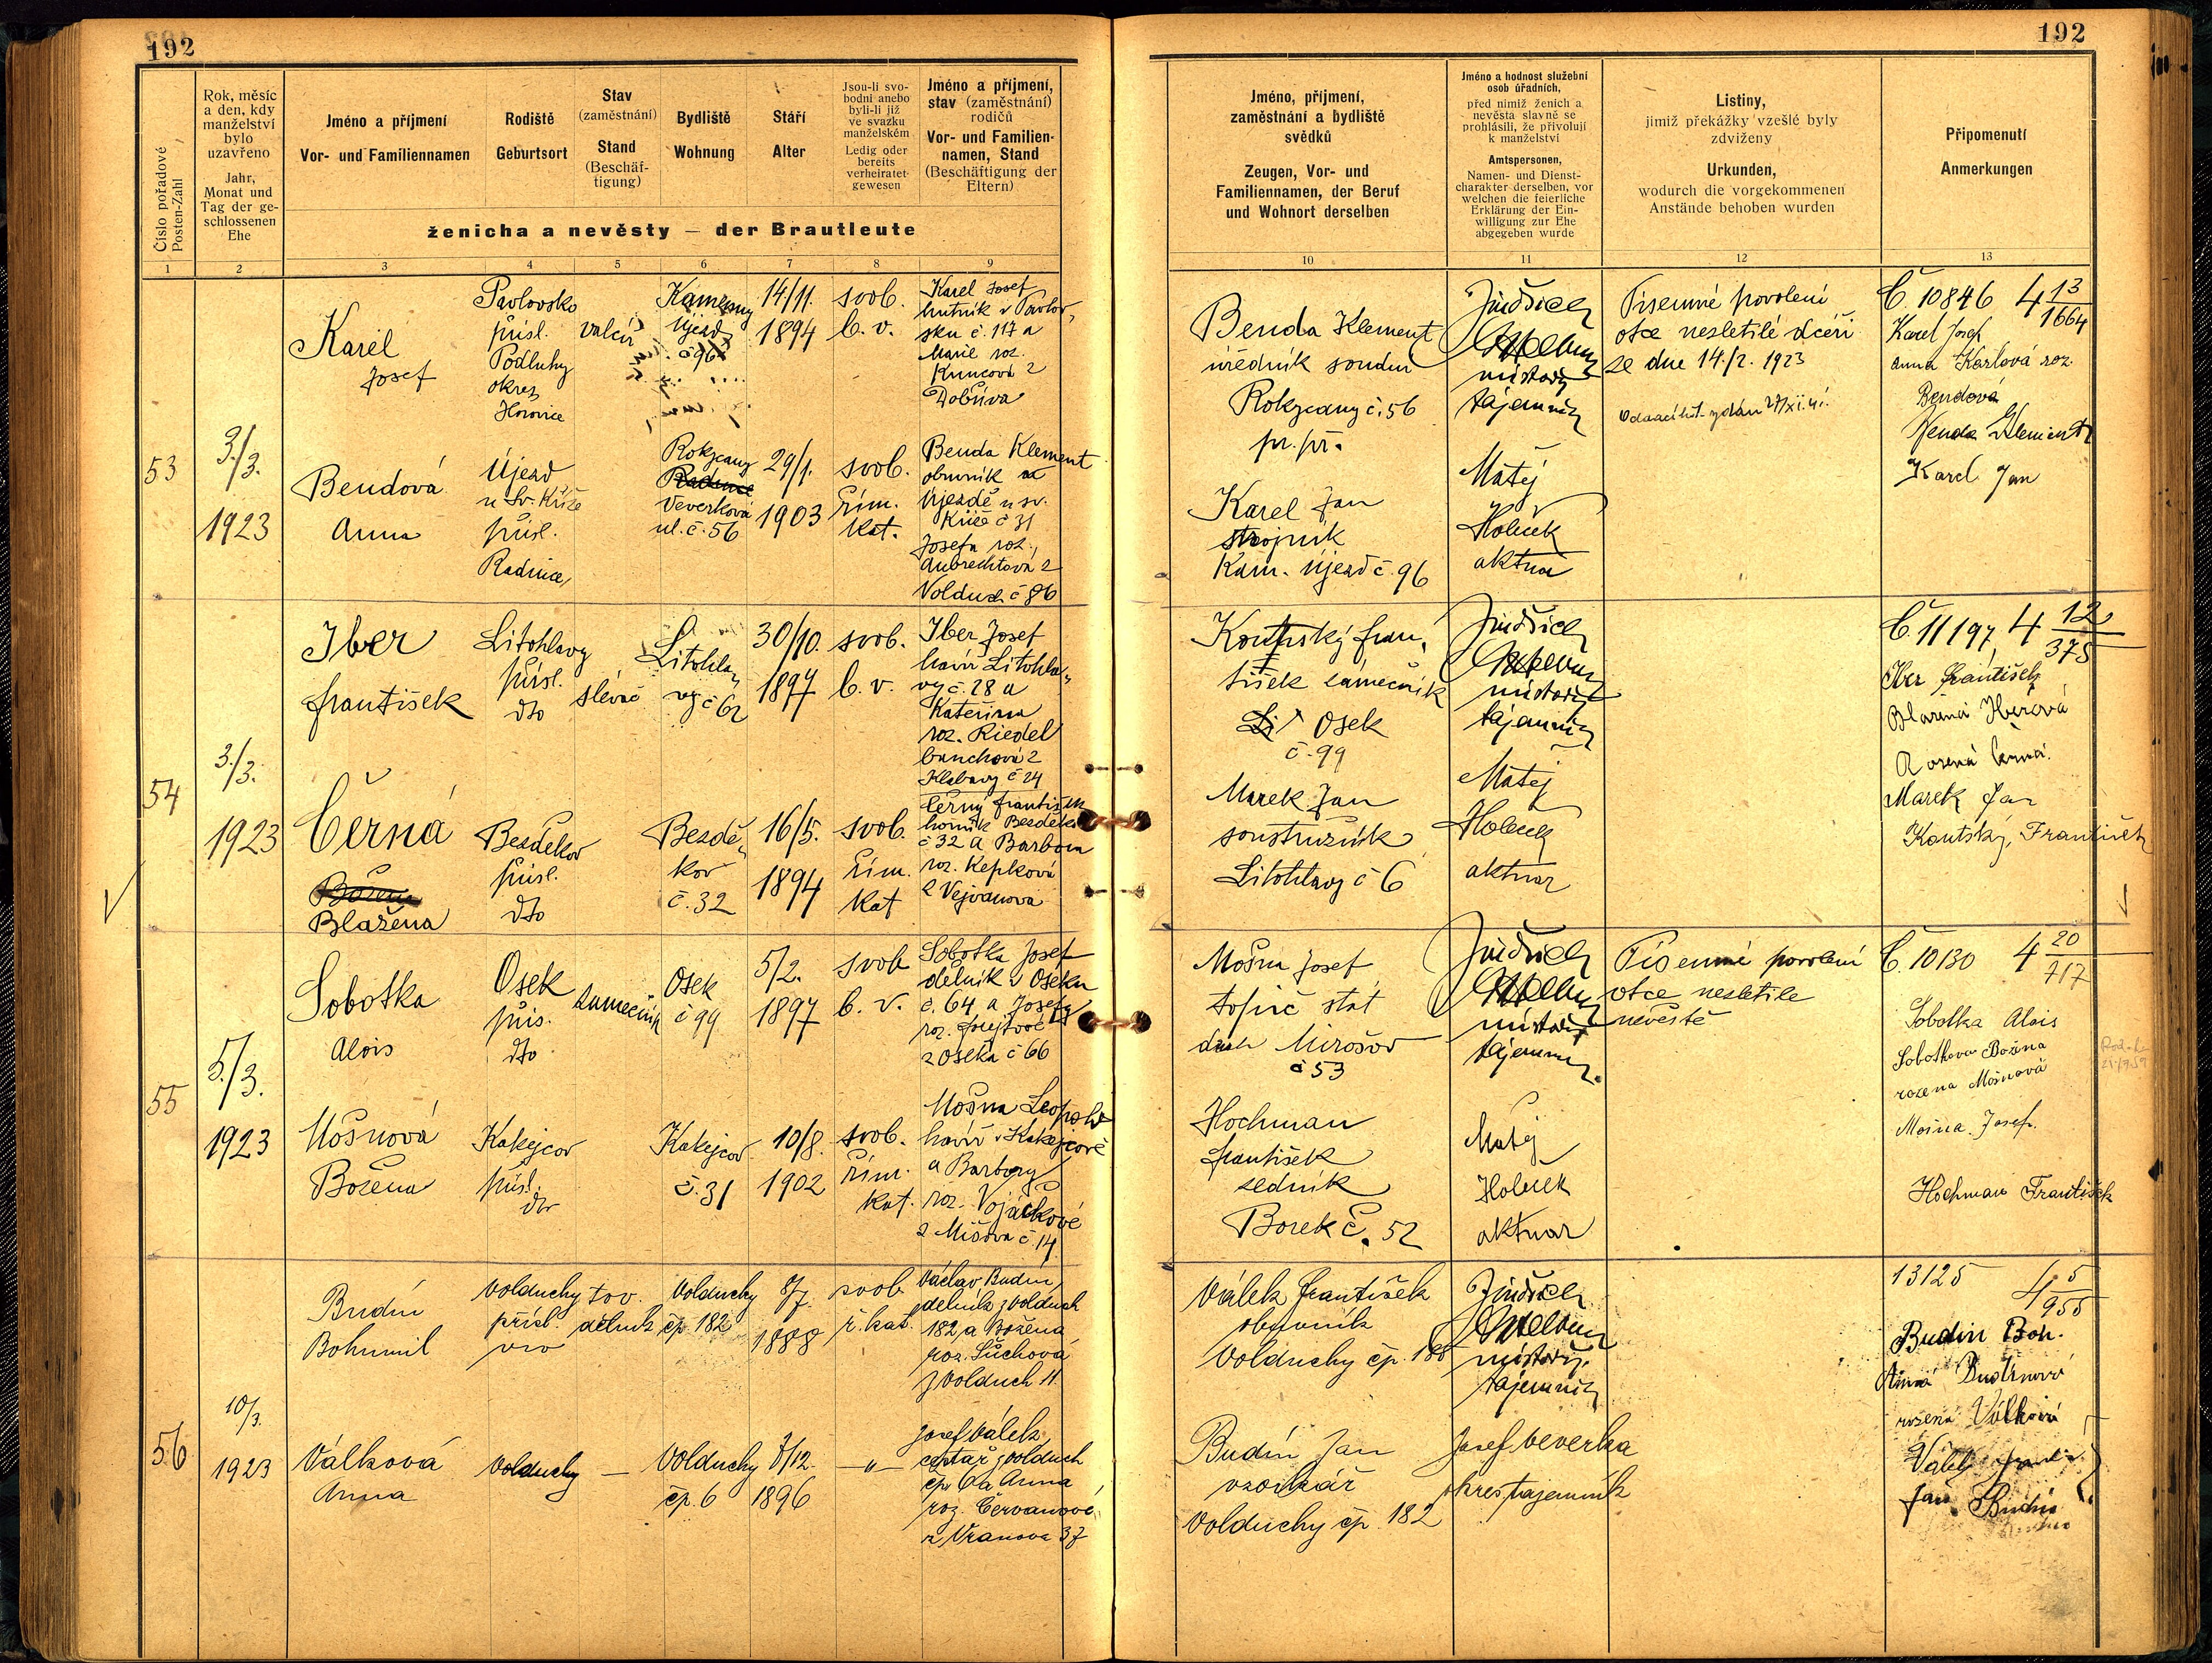 192
192
Číslo pořadové
Posten-Zahl
Rok, měsíc
a den, kdy
manželství
bylo
uzavřeno
Jahr,
Monat und
Tag der ge-
schlossenen
Ehe
Jméno a příjmení
Vor- und Familiennamen
Rodiště
Geburtsort
Stav
(zaměstnání)
Stand
(Beschäf-
tigung)
Bydliště
Wohnung
Stáří
Alter
Jsou-li svo-
bodni anebo
byli-li již
ve svazku
manželském
Ledig oder
bereits
verheiratet
gewesen
Jméno a příjmení,
stav (zaměstnání)
rodičů
Vor- und Familien-
namen, Stand
(Beschäftigung der
Eltern)
ženicha a nevěsty — der Brautleute
Jméno, příjmení,
zaměstnání a bydliště
svědků
Zeugen, Vor- und
Familiennamen, der Beruf
und Wohnort derselben
Jméno a hodnost služební
osob úřadních,
před nimiž ženich a
nevěsta slavně se
prohlásili, že přivolují
k manželství
Amtspersonen,
Namen- und Dienst-
charakter derselben, vor
welchen die feierliche
Erklärung der Ein-
willigung zur Ehe
abgegeben wurde
Listiny,
jimiž překážky vzešlé byly
zdviženy
Urkunden,
wodurch die vorgekommenen
Anstände behoben wurden
Připomenutí
Anmerkungen
1 2 3 4 5 6 7 8 9 10 11 12 13
53
3./3.
1923
Karel
Josef
Pavlovsko
přísl.
Podluhy
okres
Hořovice
valcíř
Kamenny
Újezd
č 96
14/11.
1894
svob.
b. v.
Karel Josef
hutník v Pavlov-
sku č. 117 a
Marie roz.
Kuncová z
Dobřiva
Bendová
Anna
Újezd
u Sv. Kříže
přísl.
Radnice
Rokycany
Veverkova
ul. č. 56
29/1.
1903
svob.
řím.
kat.
Benda Klement
obuvník
Újezdě u sv.
Kříže č 31
Josefa roz.
Aubrechtová z
Volduch č 86
Benda Klement
úředník soudní
Rokycany č. 56
pr. př.
Karel Jan
strojník
Kam. Újezd č. 96
Jindřich
místost.
tajemník
Matěj
Holeček
aktuar
Písemné povolení
otce nezletilé dceři
ze dne 14./2. 1923
Č. 10846 4 13/1664
Karel Josef
Anna Karlová roz.
Bendová
Benda Klement
Karel Jan
54
3./3.
1923
Iber
František
Litohlavy
přísl.
dto
slévač
Litohla-
vy č 62
30/10.
1897
svob.
b. v.
Iber Josef
havíř Litohla-
vy č. 28 a
Kateřina
roz. Riedel
bauchová z
Klabavy č 24
Černá
Blažena
Bezděkov
přísl.
dto
Bezdě-
kov
č. 32
16/5.
1894
svob.
řím.
kat
Černý František
horník Bezděkov
č 32 a Barbora
roz. Kepková
z Vejvanova
Koutský Fran-
tišek zámečník
Osek
č. 99
Marek Jan
soustružník
Litohlavy č 6
Jindřich
místost.
tajemník
Matěj
Holeček
aktuár
Č. 11197 4 12/375
Iber František
Blažena Iberová
rozená Černá.
Marek Jan
Koutský František
55
5./3.
1923
Sobotka
Alois
Osek
přís.
dto
zámečník
Osek
č 99
5/2.
1897
svob
b. v.
Sobotka Josef
dělník v Oseku
č. 64 a Josefy
z Oseka č 66
Mošnová
Božena
Kakejcov
přísl.
dto
Kakejcov
č. 31
10/8.
1902
svob.
řím.
kat.
Mošna Leopold
havíř v Kakejcově
a Barbory
roz. Vojáčkové
z Mišova č. 14
Mošna Josef
topič stát
drah Mirošov
č 53
Hochman
František
sedník
Borek č. 52
Jindřich
místost.
tajemník
Matěj
Holeček
aktuar
Písemné povolení
otce nezletile
nevěstě
Č. 10130 4 20/717
Sobotka Alois
Sobotkova Božena
rozena Mošnová
Mošna Josef.
Hochman František
56
10/3.
1923
Budín
Bohumil
Volduchy
přísl.
tov.
dělník
Volduchy
čp. 182
8/7.
1888
svob
ř. kat.
Václav Budín,
dělník z Volduch
182 a Božena
roz. Šůchová
z Volduch 11
Válková
Anna
Volduchy
—
Volduchy
čp. 6
7/12.
1896
— " —
Josef Válek
cestář z Volduch
čp. 6 a Anna
roz. Červanové
z Vranova 37
Válek František
obuvník
Volduchy čp. 186
Budín Jan
Volduchy čp. 182
Jindřich
místost.
tajemník
Josef Veverka
okres. tajemník
13125 4 5/955
Budín Boh.
Anna Budínová
rozená Válková
Válek
Jan Budín